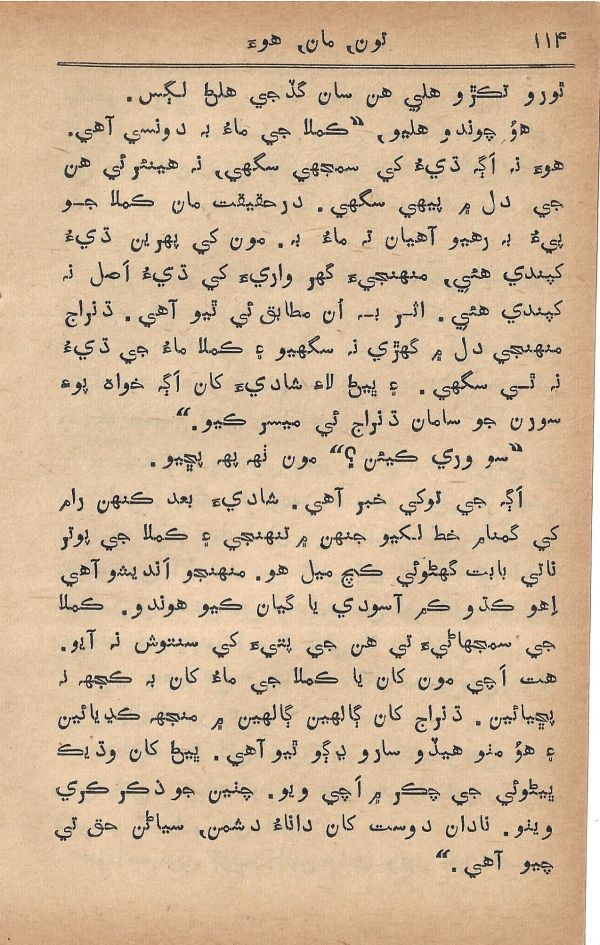 ۱۱۴ تون، مان، هوءَ
ٿورو تڪڙو هلي هن سان گڏجي هلڻ لڳس.
هؤ چوندو هليو، ”ڪملا جي ماءُ بہ دونسي آهي.
هوءَ نہ اڳہ ڌيءُ کي سمجهي سگهي، نہ هينئر ئي هن
جي دل ۾ پيهي سگهي. درحقيقت مان ڪملا جو
پيءُ بہ رهيو آهيان تہ ماءُ بہ. مون کي پهرين ڌيءُ
کپندي هئي، منهنجيءَ گهر واريءَ کي ڌيءُ اَصل نہ
کپندي هئي. اثر بہ اُن مطابق ئي ٿيو آهي. ڌنراج
منهنجي دل ۾ گهڙي نہ سگهيو ۽ ڪملا ماءُ جي ڌيءُ
نہ ٿي سگهي. ۽ ڀيڻ لاءِ شاديءَ کان اڳہ خواه پوءِ
سورن جو سامان ڌنراج ئي ميسر ڪيو.“
”سو وري ڪيئن؟“ مون ٺهہ پهہ پڇيو.
اڳہ جي توکي خبر آهي. شاديءَ بعد ڪنهن رام
کي گمنام خط لکيو جنهن ۾ تنهنجي ۽ ڪملا جي پوتر
ناتي بابت گهڻوئي ڪچ ميل هو. منهنجو اَنديشو آهي
اِهو ڪڌو ڪم آسودي يا گيان ڪيو هوندو. ڪملا
جي سمجهاڻيءَ تي هن جي پتيءَ کي سنتوش نہ آيو.
هت اَچي مون کان يا ڪملا جي ماءُ کان بہ ڪجهہ نہ
پڇيائين. ڌنراج کان ڳالهين ڳالهين ۾ منجهہ ڪڍيائين
۽ هؤ منو هيڏو سارو ڍڳو ٿيو آهي. ڀيڻ کان وڌيڪ
ڀيڻوئي جي چڪر ۾ اَچي ويو. چنين جو ذڪر ڪري
ويٺو. نادان دوست کان داناءُ دشمن، سياڻن حق تي
چيو آهي.“